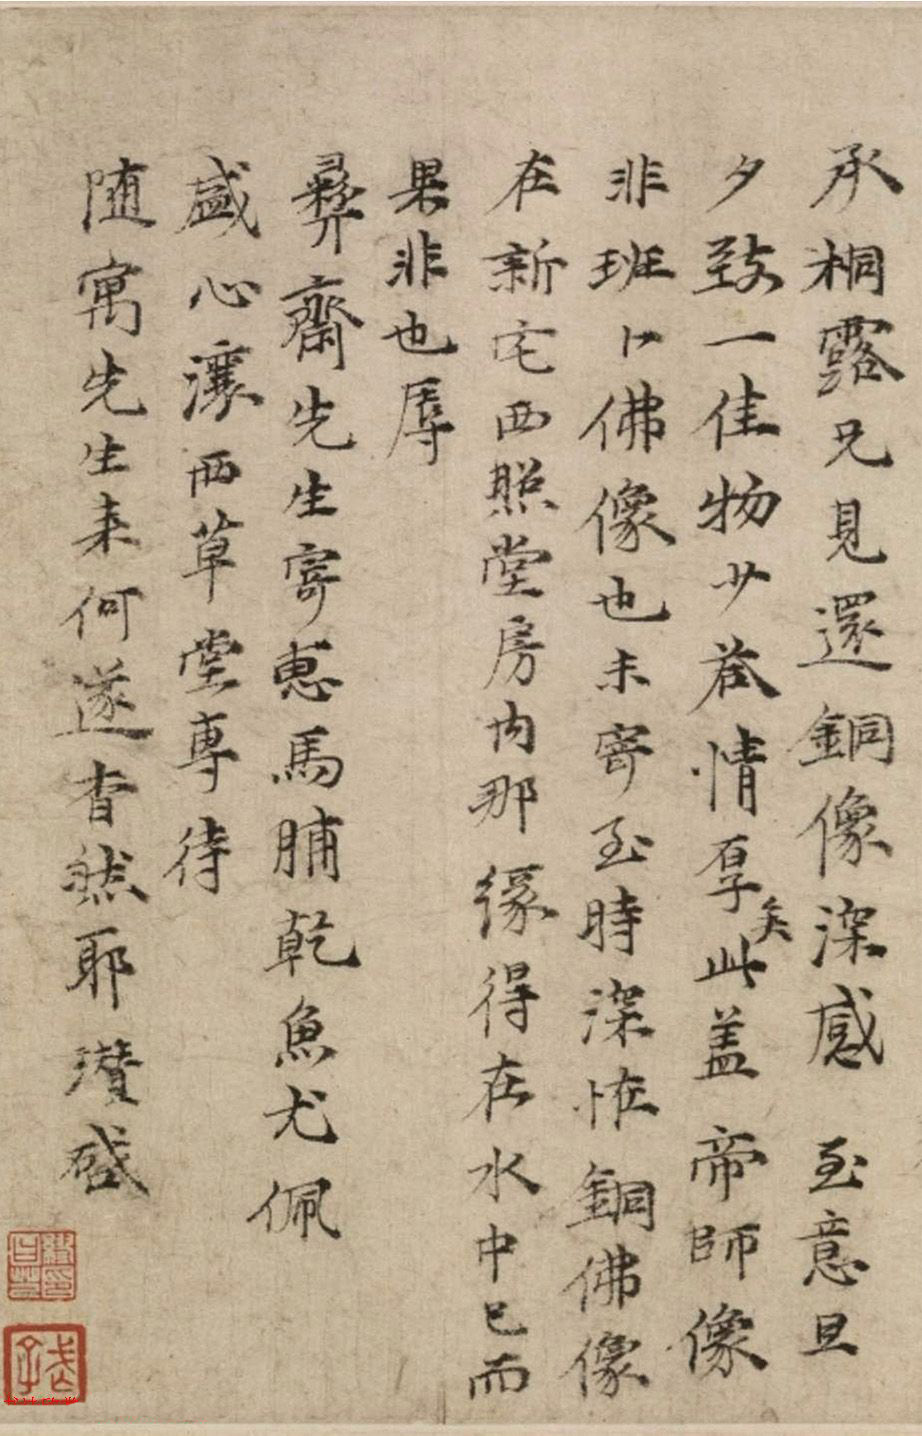 承桐露兄見還銅像深感至意旦
夕致一佳物少荅情厚矣此盖帝師像
非班卜佛像也未寄至時深恠銅佛像
在新宅西照堂房内那緣得在水中已而
果非也辱
彝齋先生寄惠馬脯乾魚尤佩
盛心瀼西草堂專待
随寓先生来何遂杳然耶瓚啟